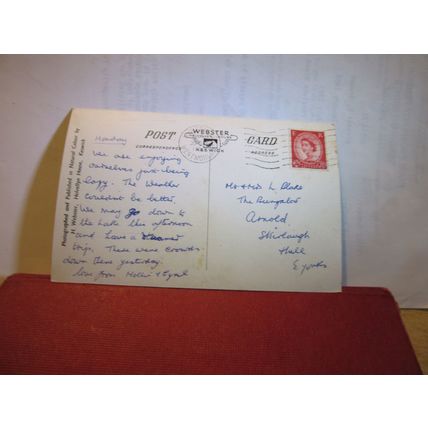 Monday
POST CARD
CORRESPONDENCE
ADDRESS
WEBSTER
KESWICK
Photographed and Published in Natural Colour by
H Webster, Helvellyn House, Keswick
We are enjoying
ourselves just being
lazy. The Weather
couldn't be better.
We may go down to
the Lake this afternoon
and have a
trip. There were crowds
down there yesterday.
love from
Mr & Mrs L. Blake
The Bungalow
Arnold
Skirlaugh
Hull
E Yorks